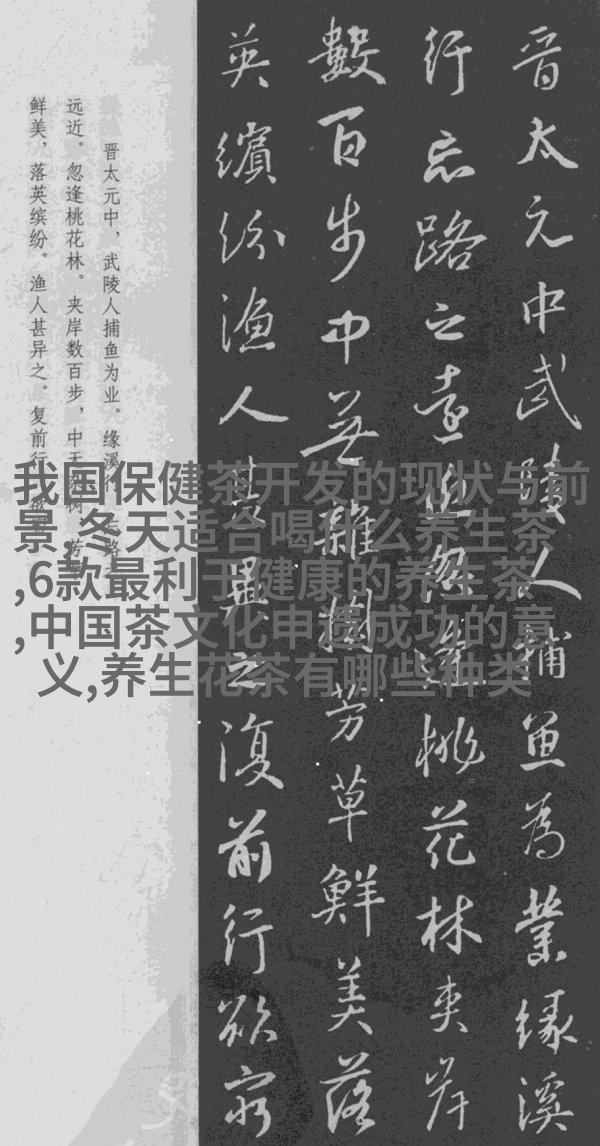 晋太元中武陵人捕魚為業緣溪
行忘路之遠近忽逢桃花林夾岸
數百步中無雜樹芳草鮮美落
英繽紛漁人甚異之復前行欲窮
晋太元中，武陵人捕鱼为业。缘溪行，忘路之
远近。忽逢桃花林。夹岸数百步，中无杂树，芳草
鲜美，落英缤纷。渔人甚异之。复前行，欲
我国保健茶开发的现状与前
景,冬天适合喝什么养生茶
,6款最利于健康的养生茶
,中国茶文化申遗成功的意
义,养生花茶有哪些种类